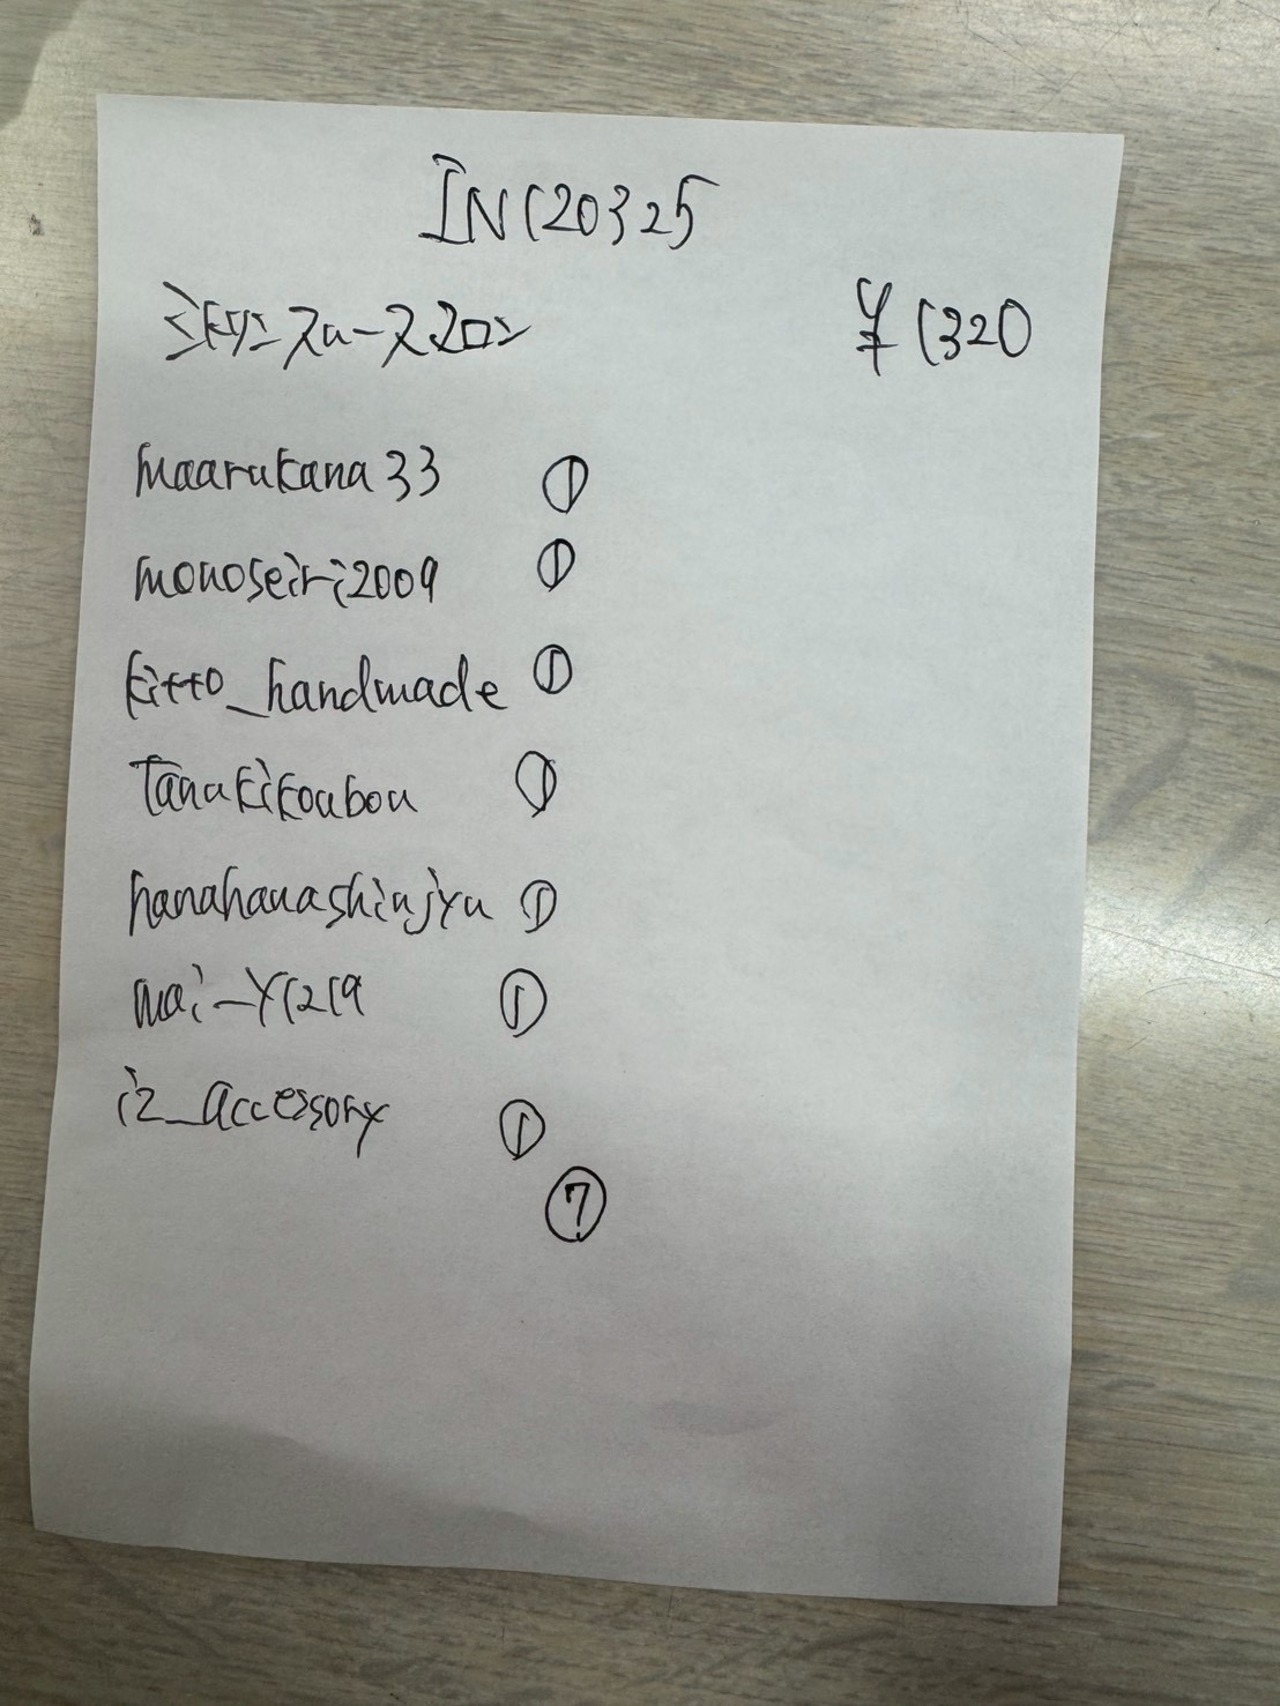 IN120325
ミキワニスムースユロン ¥1320
maarukana33 ①
monoseiri2009 ①
kitto_handmade ①
tanakikoubou ①
hanahanashinjyu ①
mai-y1219 ①
iz_accessory ①
⑦